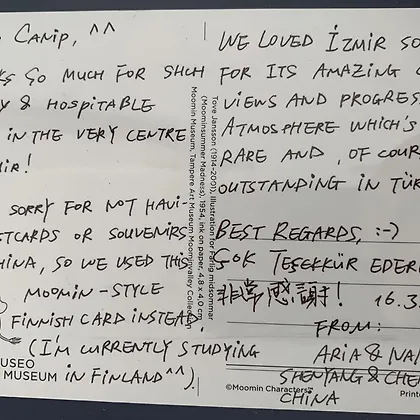 CAMP, ^^
SO MUCH FOR SUCH
& HOSPITABLE
IN THE VERY CENTRE
SORRY FOR NOT HAVI-
OR SOUVENIRS
SO WE USED THIS
MOOMIN-STYLE
FINNISH CARD INSTEAD.
(I'M CURRENTLY STUDYING
IN FINLAND ^^).
MUSEUM
Tove Jansson (1914–2001), Illustration for Farlig midsommar
(Moominsummer Madness), 1954, ink on paper, 4,8 x 4,0 cm
Moomin Museum, Tampere Art Museum Moominvalley Collection
WE LOVED İZMİR SO
FOR ITS AMAZING
VIEWS AND PROGRES
ATMOSPHERE WHICH'S
RARE AND, OF COUR
OUTSTANDING IN TÜR
BEST REGARDS, :-)
ÇOK TEŞEKKÜR EDER
非常感謝! 16.3.
FROM:
ARIA & NA
SHENYANG & CHE
CHINA
©Moomin Characters™
Printe